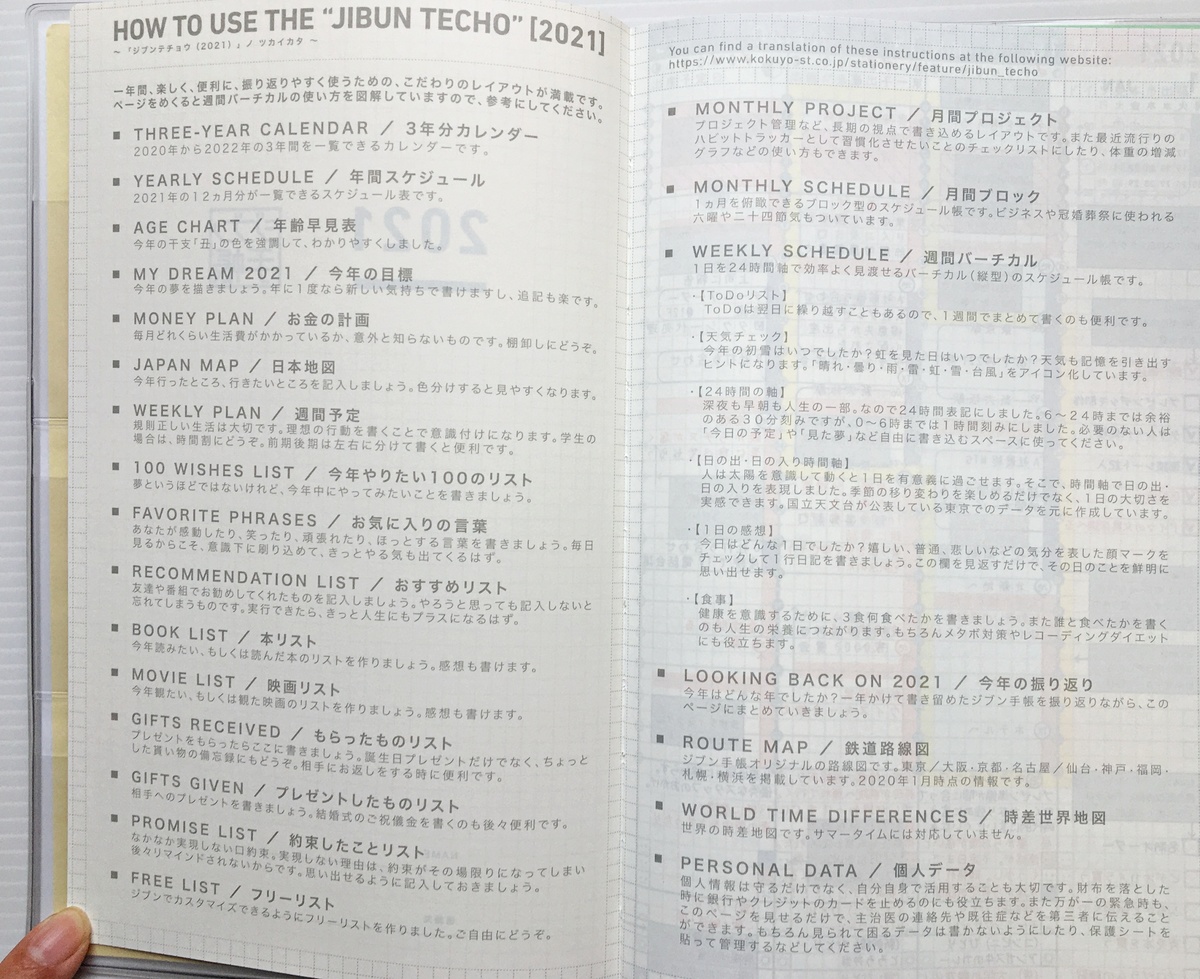 HOW TO USE THE "JIBUN TECHO" [2021]
~「ジブンテチョウ (2021) 」ノ ツカイカタ ~
一年間、楽しく、便利に、振り返りやすく使うための、こだわりのレイアウトが満載です。
ページをめくると週間バーチカルの使い方を図解していますので、参考にしてください。
■ THREE-YEAR CALENDAR / 3年分カレンダー
2020年から2022年の3年間を一覧できるカレンダーです。
■ YEARLY SCHEDULE / 年間スケジュール
2021年の12ヵ月分が一覧できるスケジュール表です。
■ AGE CHART / 年齢早見表
今年の干支「丑」の色を強調して、わかりやすくしました。
■ MY DREAM 2021 / 今年の目標
今年の夢を描きましょう。年に1度なら新しい気持ちで書けますし、追記も楽です。
■ MONEY PLAN / お金の計画
毎月どれくらい生活費がかかっているか、意外と知らないものです。棚卸しにどうぞ。
■ JAPAN MAP / 日本地図
今年行ったところ、行きたいところを記入しましょう。色分けすると見やすくなります。
■ WEEKLY PLAN / 週間予定
規則正しい生活は大切です。理想の行動を書くことで意識付けになります。学生の
場合は、時間割にどうぞ。前期後期は左右に分けて書くと便利です。
■ 100 WISHES LIST / 今年やりたい100のリスト
夢というほどではないけれど、今年中にやってみたいことを書きましょう。
■ FAVORITE PHRASES / お気に入りの言葉
あなたが感動したり、笑ったり、頑張れたり、ほっとする言葉を書きましょう。毎日
見るからこそ、意識下に刷り込めて、きっとやる気も出てくるはず。
■ RECOMMENDATION LIST / おすすめリスト
友達や番組でお勧めしてくれたものを記入しましょう。やろうと思っても記入しないと
忘れてしまうものです。実行できたら、きっと人生にもプラスになるはず。
■ BOOK LIST / 本リスト
今年読みたい、もしくは読んだ本のリストを作りましょう。感想も書けます。
■ MOVIE LIST / 映画リスト
今年観たい、もしくは観た映画のリストを作りましょう。感想も書けます。
■ GIFTS RECEIVED / もらったものリスト
プレゼントをもらったらここに書きましょう。誕生日プレゼントだけでなく、ちょっと
した貰い物の備忘録にもどうぞ。相手にお返しをする時に便利です。
■ GIFTS GIVEN / プレゼントしたものリスト
相手へのプレゼントを書きましょう。結婚式のご祝儀金を書くのも後々便利です。
■ PROMISE LIST / 約束したことリスト
なかなか実現しない口約束。実現しない理由は、約束がその場限りになってしまい
後々リマインドされないからです。思い出せるように記入しておきましょう。
■ FREE LIST / フリーリスト
ジブンでカスタマイズできるようにフリーリストを作りました。ご自由にどうぞ。
You can find a translation of these instructions at the following website:
https://www.kokuyo-st.co.jp/stationery/feature/jibun_techo
■ MONTHLY PROJECT / 月間プロジェクト
プロジェクト管理など、長期の視点で書き込めるレイアウトです。また最近流行りの
ハビットトラッカーとして習慣化させたいことのチェックリストにしたり、体重の増減
グラフなどの使い方もできます。
■ MONTHLY SCHEDULE / 月間ブロック
1ヵ月を俯瞰できるブロック型のスケジュール帳です。ビジネスや冠婚葬祭に使われる
六曜や二十四節気もついています。
■ WEEKLY SCHEDULE / 週間バーチカル
1日を24時間軸で効率よく見渡せるバーチカル(縦型)のスケジュール帳です。
・【ToDoリスト】
ToDoは翌日に繰り越すこともあるので、1週間でまとめて書くのも便利です。
・【天気チェック】
今年の初雪はいつでしたか?虹を見た日はいつでしたか?天気も記憶を引き出す
ヒントになります。「晴れ・曇り・雨・雷・虹・雪・台風」をアイコン化しています。
・【24時間の軸】
深夜も早朝も人生の一部。なので24時間表記にしました。6〜24時までは余裕
のある30分刻みですが、0〜6時までは1時間刻みにしました。必要のない人は
「今日の予定」や「見た夢」など自由に書き込むスペースに使ってください。
・【日の出・日の入り時間軸】
人は太陽を意識して動くと1日を有意義に過ごせます。そこで、時間軸で日の出・
日の入りを表現しました。季節の移り変わりを楽しめるだけでなく、1日の大切さを
実感できます。国立天文台が公表している東京でのデータを元に作成しています。
・【1日の感想】
今日はどんな1日でしたか?嬉しい、普通、悲しいなどの気分を表した顔マークを
チェックして1行日記を書きましょう。この欄を見返すだけで、その日のことを鮮明に
思い出せます。
・【食事】
健康を意識するために、3食何食べたかを書きましょう。また誰と食べたかを書く
のも人生の栄養につながります。もちろんメタボ対策やレコーディングダイエット
にも役立ちます。
■ LOOKING BACK ON 2021 / 今年の振り返り
今年はどんな年でしたか?一年かけて書き留めたジブン手帳を振り返りながら、この
ページにまとめていきましょう。
■ ROUTE MAP / 鉄道路線図
ジブン手帳オリジナルの路線図です。東京/大阪・京都・名古屋/仙台・神戸・福岡・
札幌・横浜を掲載しています。2020年1月時点の情報です。
■ WORLD TIME DIFFERENCES / 時差世界地図
世界の時差地図です。サマータイムには対応していません。
■ PERSONAL DATA / 個人データ
個人情報は守るだけでなく、自分自身で活用することも大切です。財布を落とした
時に銀行やクレジットのカードを止めるのにも役立ちます。また万が一の緊急時も、
このページを見せるだけで、主治医の連絡先や既往症などを第三者に伝えること
ができます。もちろん見られて困るデータは書かないようにしたり、保護シートを
貼って管理するなどしてください。